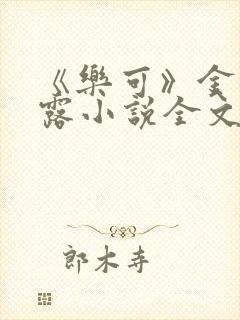 《樂可》金
露小說全文
郎木寺